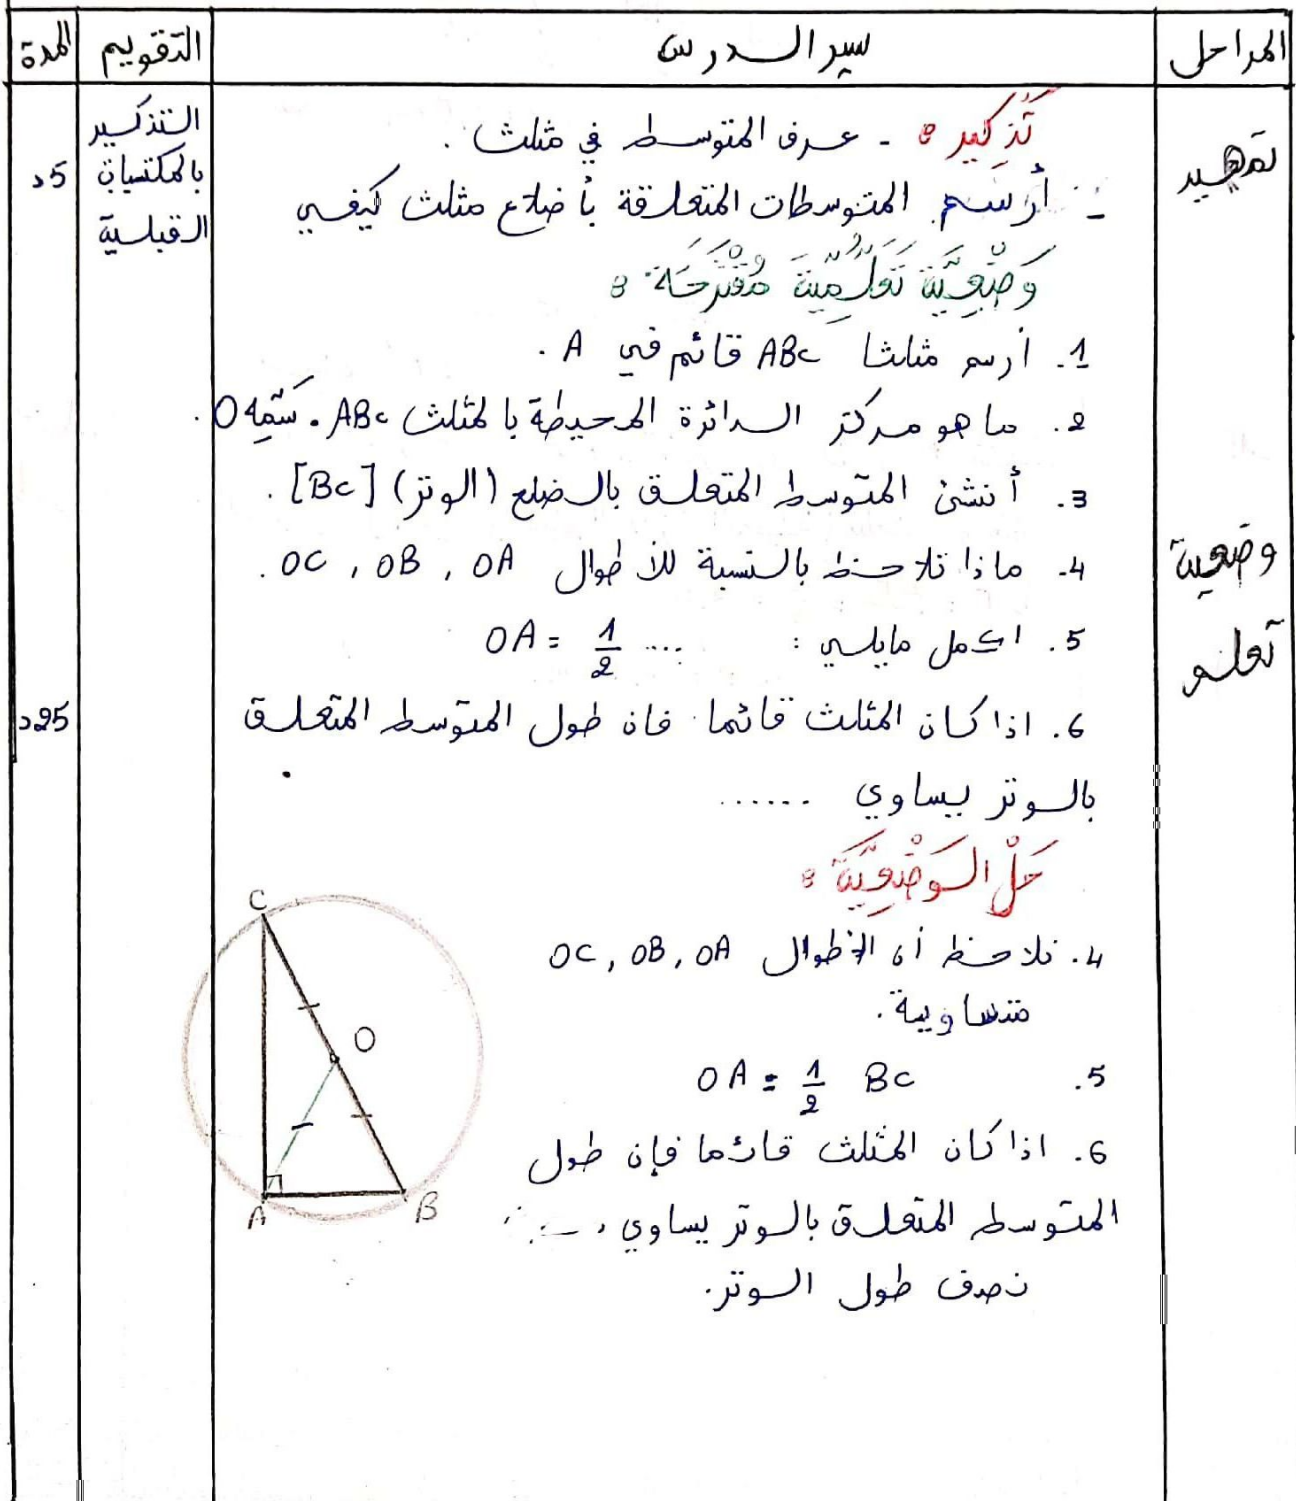 المراحل
سير الدرس
التقويم
المدة
تمهيد
تَذكير : - عرف المتوسط في مثلث .
- أرسم المتوسطات المتعلقة بأضلاع مثلث كيفي
التذكير
بالمكتسبات
القبلية
5د
وضعية
تعلم
وَضْعِيَّة تَعَلُّمِيَّة مُقْتَرَحَة :
1. أرسم مثلثا ABC قائم في A .
2. ما هو مركز الدائرة المحيطة بالمثلث ABC . سَمِّه O .
3. أنشئ المتوسط المتعلق بالضلع (الوتر) [BC] .
4. ماذا تلاحظ بالنسبة للأطوال OA , OB , OC .
5. اكمل مايلي : OA = 1/2 ....
6. اذا كان المثلث قائما فان طول المتوسط المتعلق
بالوتر يساوي ......
25د
حَلْ الوَضْعِيَّة :
4. نلاحظ أن الأطوال OA , OB , OC
متساوية .
5. OA = 1/2 BC
6. اذا كان المثلث قائما فإن طول
المتوسط المتعلق بالوتر يساوي
نصف طول الوتر.
C
O
A
B